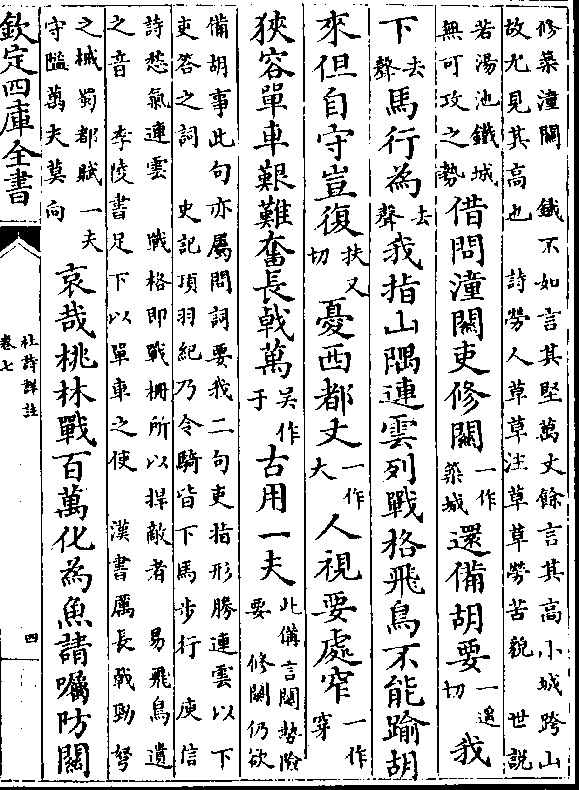 修築潼關 鐵不如言其堅萬丈餘言其高小城跨山
故尤見其高也 詩勞人草草注草草勞苦貌 世説
若湯池鐵城無可攻之勢借問潼關吏修關一作築城還備胡要一邀切我
下去聲馬行為去聲我指山隅連雲列戰格飛鳥不能踰胡
來但自守豈復扶又切憂西都丈一作大人視要處窄一作穿
狹容單車艱難奮長戟萬吳作于古用一夫此備言關勢險要 修關仍欲
備胡事此句亦屬問詞要我二句吏指形勝連雲以下
吏答之詞 史記項羽紀乃令騎皆下馬步行 庾信
詩愁氣連雲 戰格即戰柵所以捍敵者 易飛鳥遺
之音 李陵書足下以單車之使 漢書厲長戟勁弩
之械蜀都賦一夫守隘萬夫莫向 哀哉桃林戰百萬化為魚請囑防關
欽定四庫全書
杜詩詳註
卷七
四